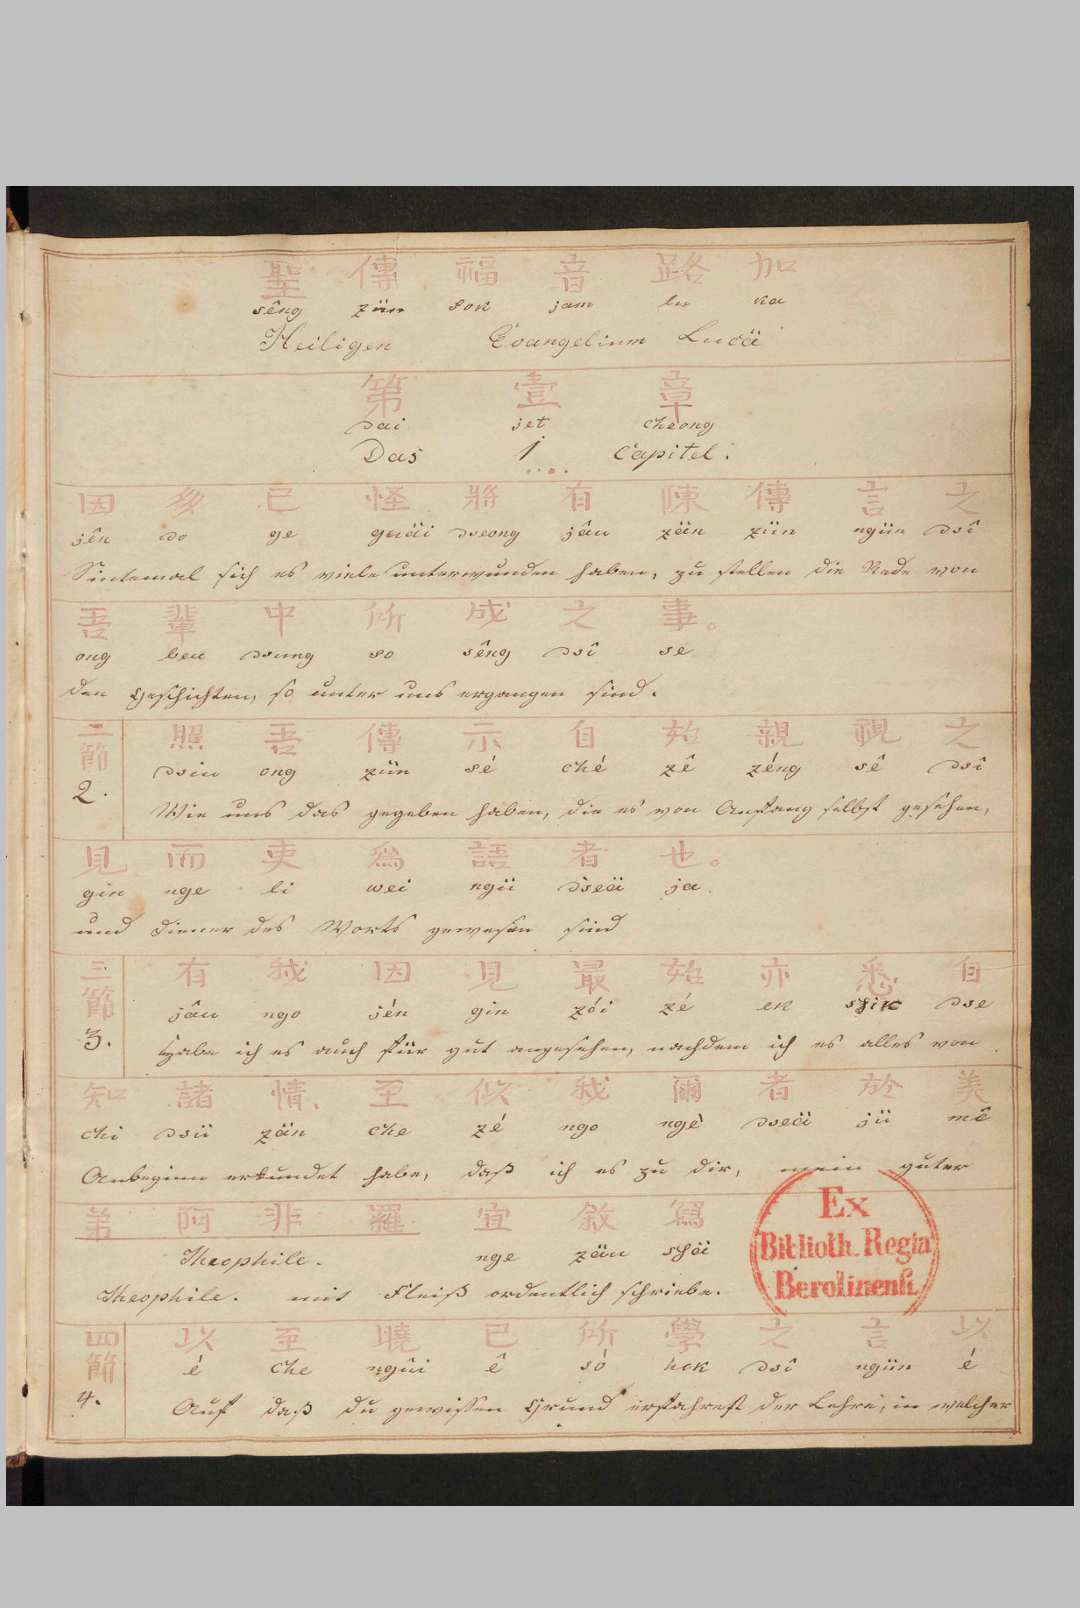 聖 傳 福 音 路 加
sêng zün sok jam lu ka
Heiligen Evangelium Lucä
第 壹 章
dai jet cheong
Das 1 Capitel.
因 多 已 怪 將 有 陳 傳 言 之
jên do ge guäi dseong jâu zän zün ngün dsî
Sintemal sich es viele unterwunden haben, zu stellen die Rede von
吾 輩 中 所 成 之 事。
ong bea dsung so sêng dsî se
den Geschichten, so unter uns ergangen sind.
二節 照 吾 傳 示 自 始 親 視 之
2. dsiu ong zün sé ché zê zéng sê dsî
Wie uns das gegeben haben, die es von Anfang selbst gesehen,
見 而 吏 爲 語 者 也。
gin nge li wei ngü dseä ja.
und Diener des Worts gewesen sind
三節 有 我 因 見 最 始 亦 悉 自
3. jâu ngo jén gin zói zé ek sik dse
Habe ich es auch für gut angesehen, nachdem ich es alles von
知 諸 情、 至 似 我 爾 者 於 美
chi dsü zän che zé ngo ngè dseä jü mê
Anbeginn erkundet habe, daß ich es zu dir, mein guter
弟 阿 非 羅 宜 敘 寫
Theophile. nge zän shäi
Theophile. mit Fleiß ordentlich schriebe.
Ex
Biblioth. Regia
Berolinensi.
四節 以 至 曉 已 所 學 之 言 以
4. é che ngûi ê só hok dsî ngün é
Auf daß du gewissen Grund erfahrest der Lehre, in welcher